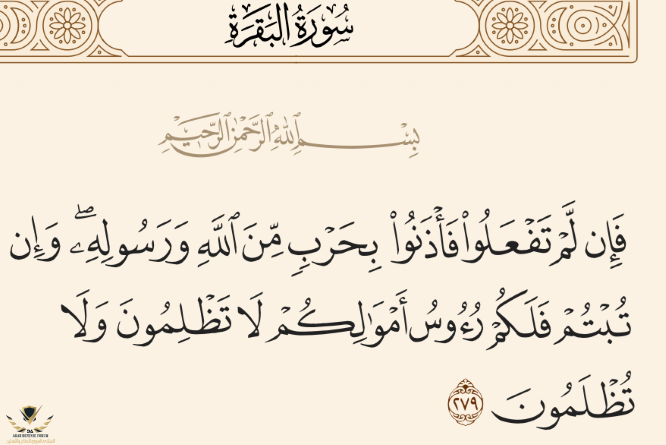 سُورَةُ البَقَرَةِ
بِسْمِ ٱللَّهِ ٱلرَّحْمَٰنِ ٱلرَّحِيمِ
فَإِن لَّمْ تَفْعَلُوا۟ فَأْذَنُوا۟ بِحَرْبٍ مِّنَ ٱللَّهِ وَرَسُولِهِۦ ۖ وَإِن
تُبْتُمْ فَلَكُمْ رُءُوسُ أَمْوَٰلِكُمْ لَا تَظْلِمُونَ وَلَا
تُظْلَمُونَ ٢٧٩
DA
ARAB DEFENSE FORUM